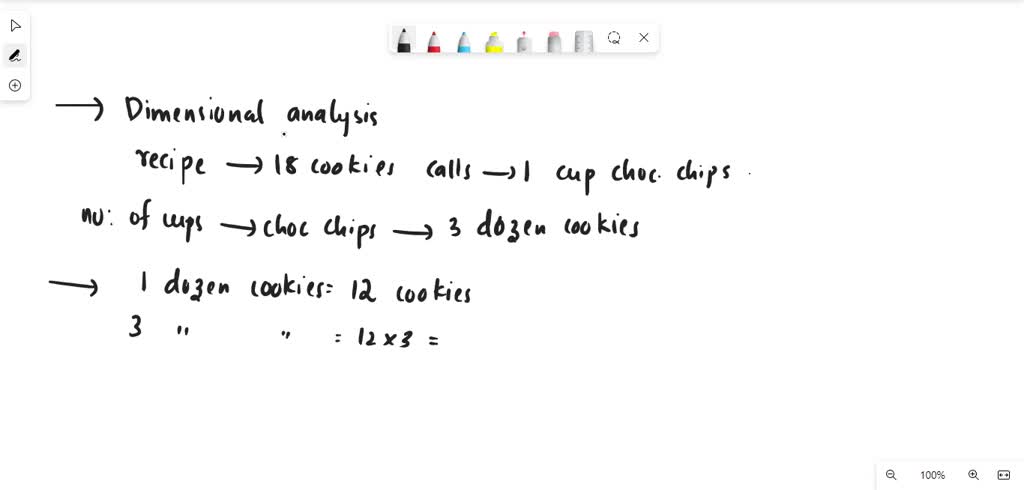 → Dimensional analysis
recipe → 18 cookies calls → 1 cup choc. chips.
no: of cups → choc chips → 3 dozen cookies
→ 1 dozen cookies = 12 cookies
3 " " = 12 x 3 =
100%